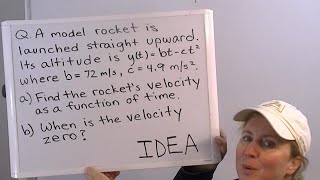 Q. A model rocket is
launched straight upward.
Its altitude is y(t) = bt-ct²
where b = 72 m/s, c = 4.9 m/s².
a) Find the rocket's velocity
as a function of time.
b) When is the velocity
zero?
IDEA